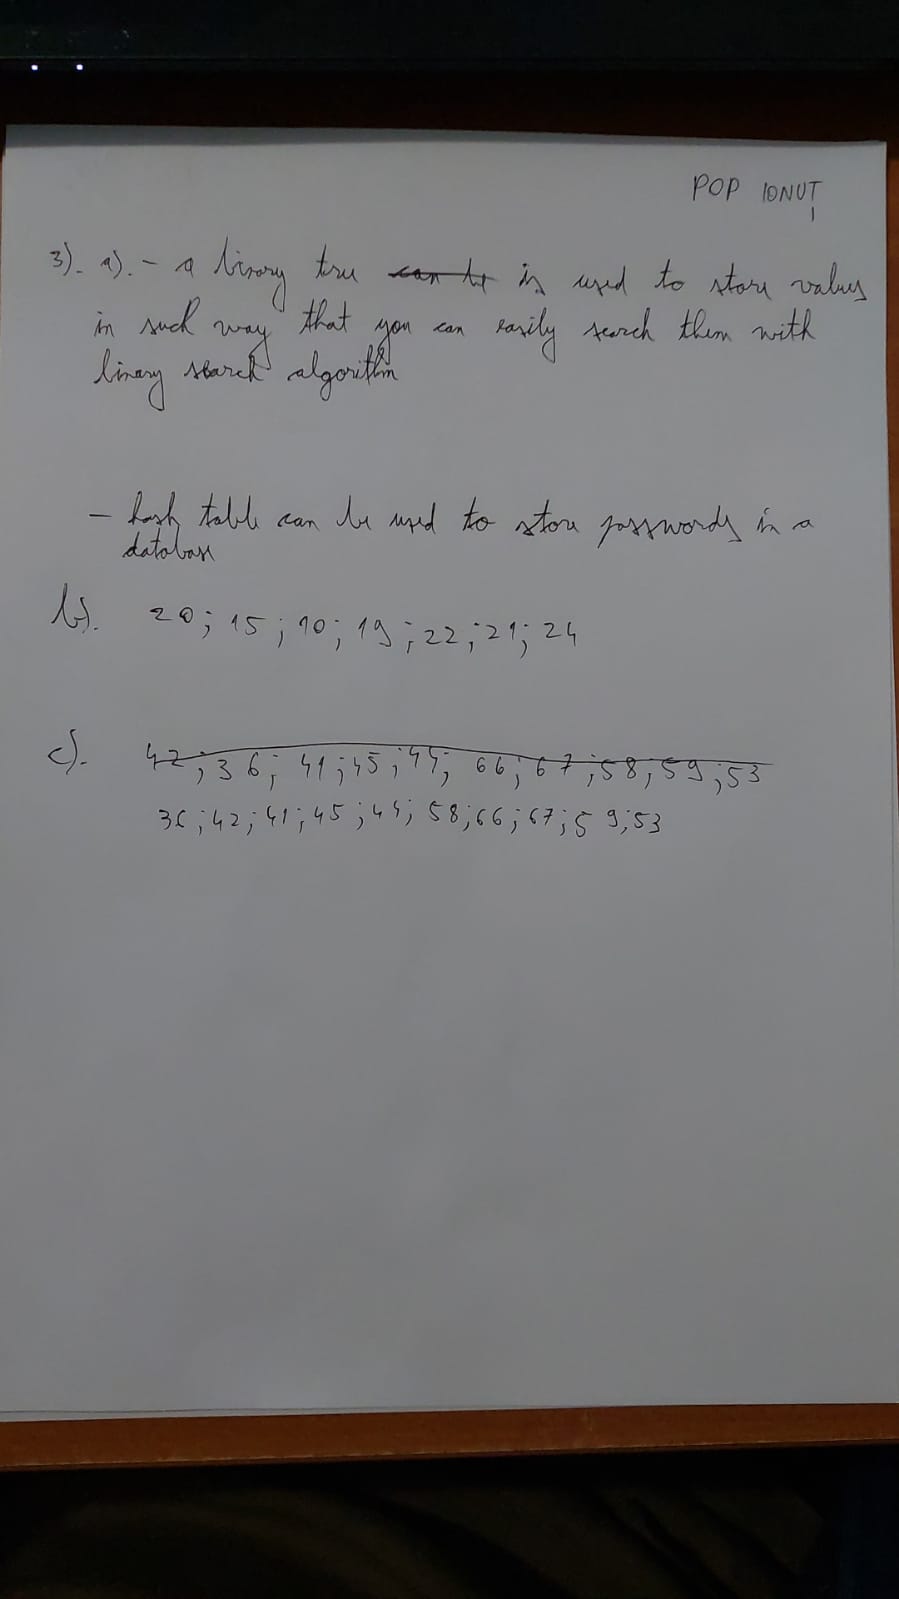 POP IONUȚ
3). a). - a binary tree can be is used to store values
in such way that you can easily search them with
binary search algorithm
- hash table can be used to store passwords in a
database
b). 20; 15; 10; 19; 22; 21; 24
c). 42; 36; 41; 45; 44; 66; 67; 58; 59; 53
36; 42; 41; 45; 44; 58; 66; 67; 59; 53